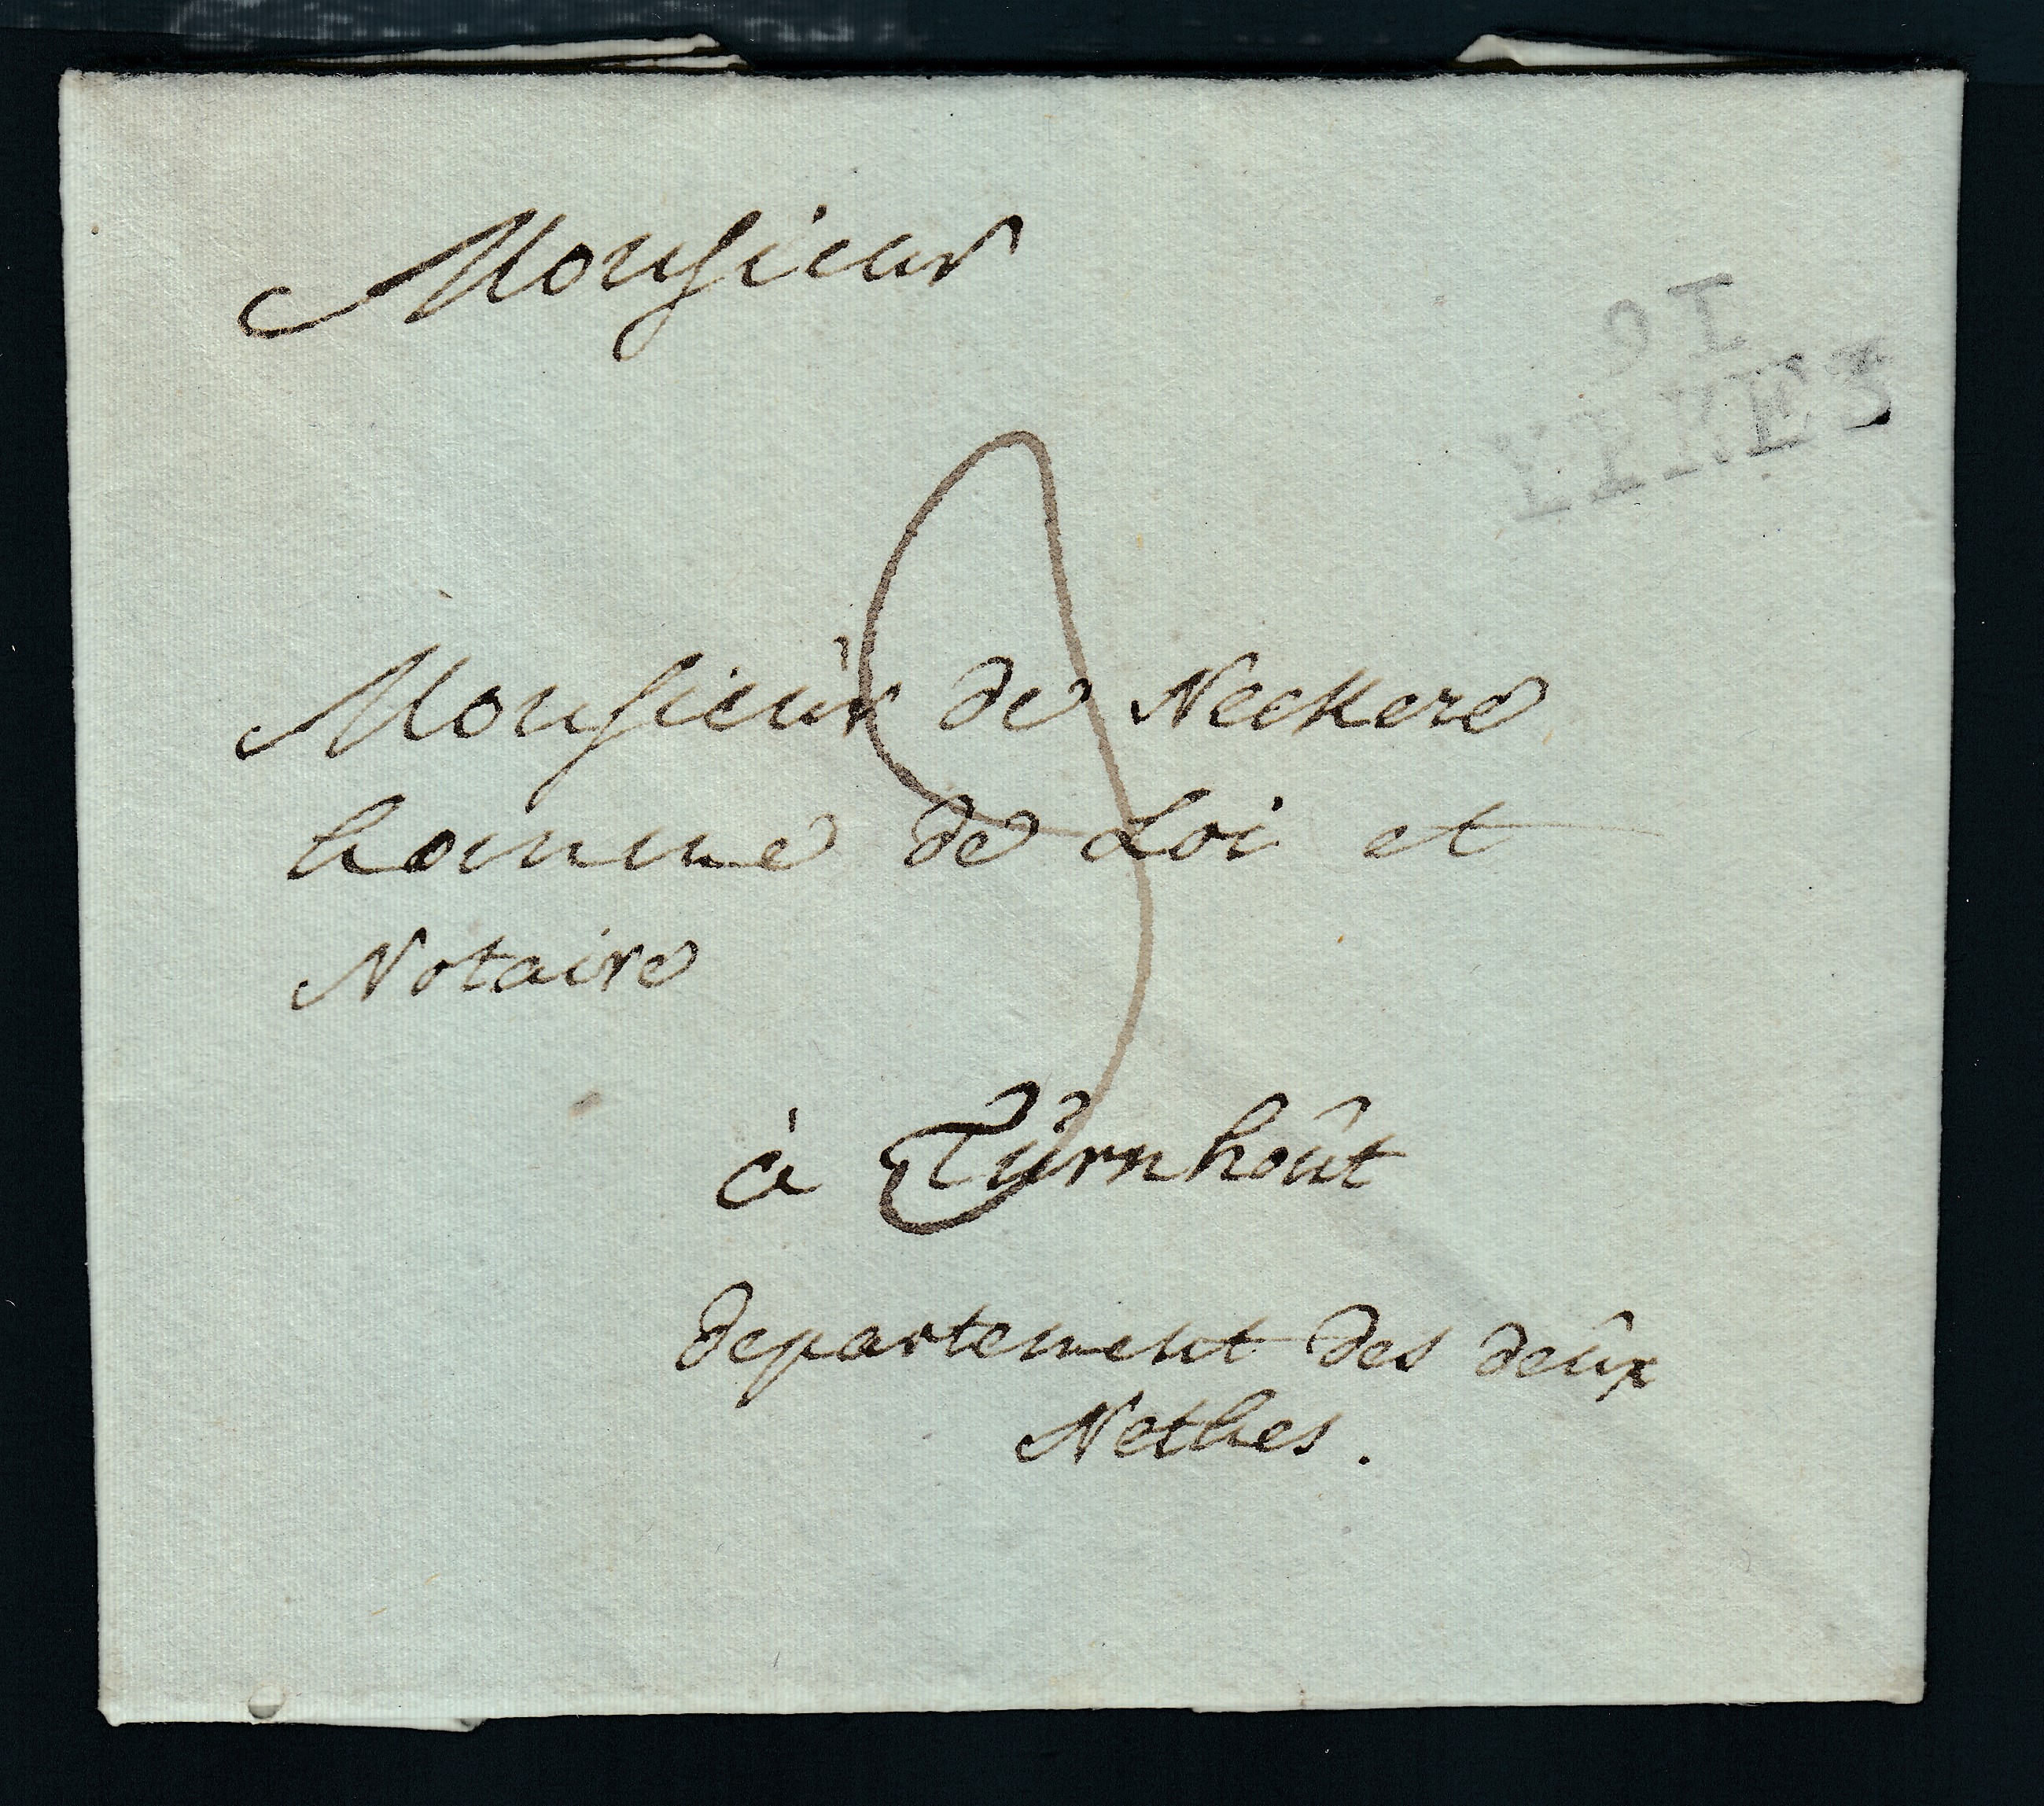 Monsieur
91
YPRES
Monsieur de Neckere
homme de Loi et
Notaire
3
à Turnhout
departement des deux
Nethes.